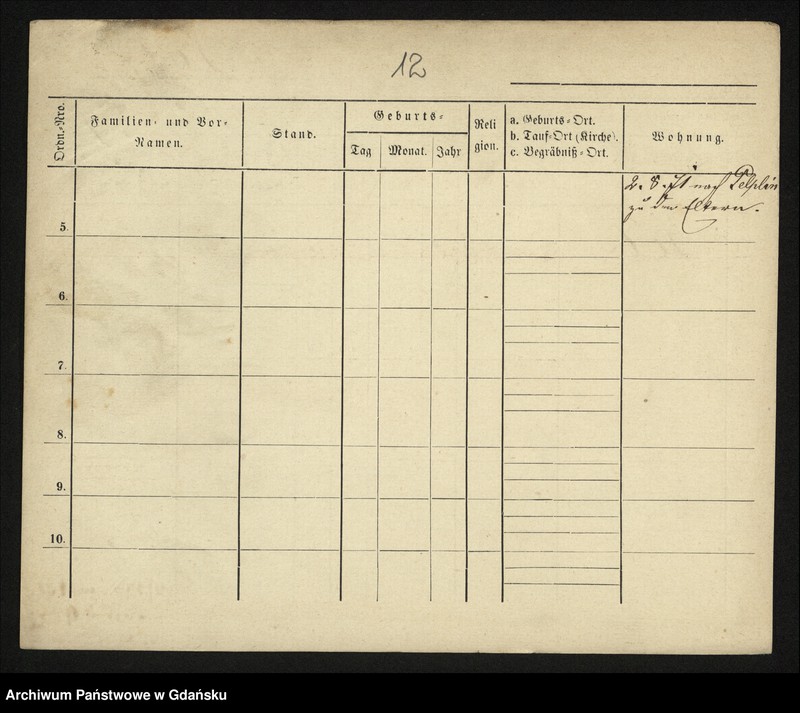 12
Ordn.-Nro.
Familien- und Vor-
Namen.
Stand.
Geburts-
Tag
Monat.
Jahr
Reli
gion.
a. Geburts-Ort.
b. Tauf-Ort (Kirche).
c. Begräbniß-Ort.
Wohnung.
nach Pelplin
zu den Eltern.
5.
6.
7.
8.
9.
10.
Archiwum Państwowe w Gdańsku